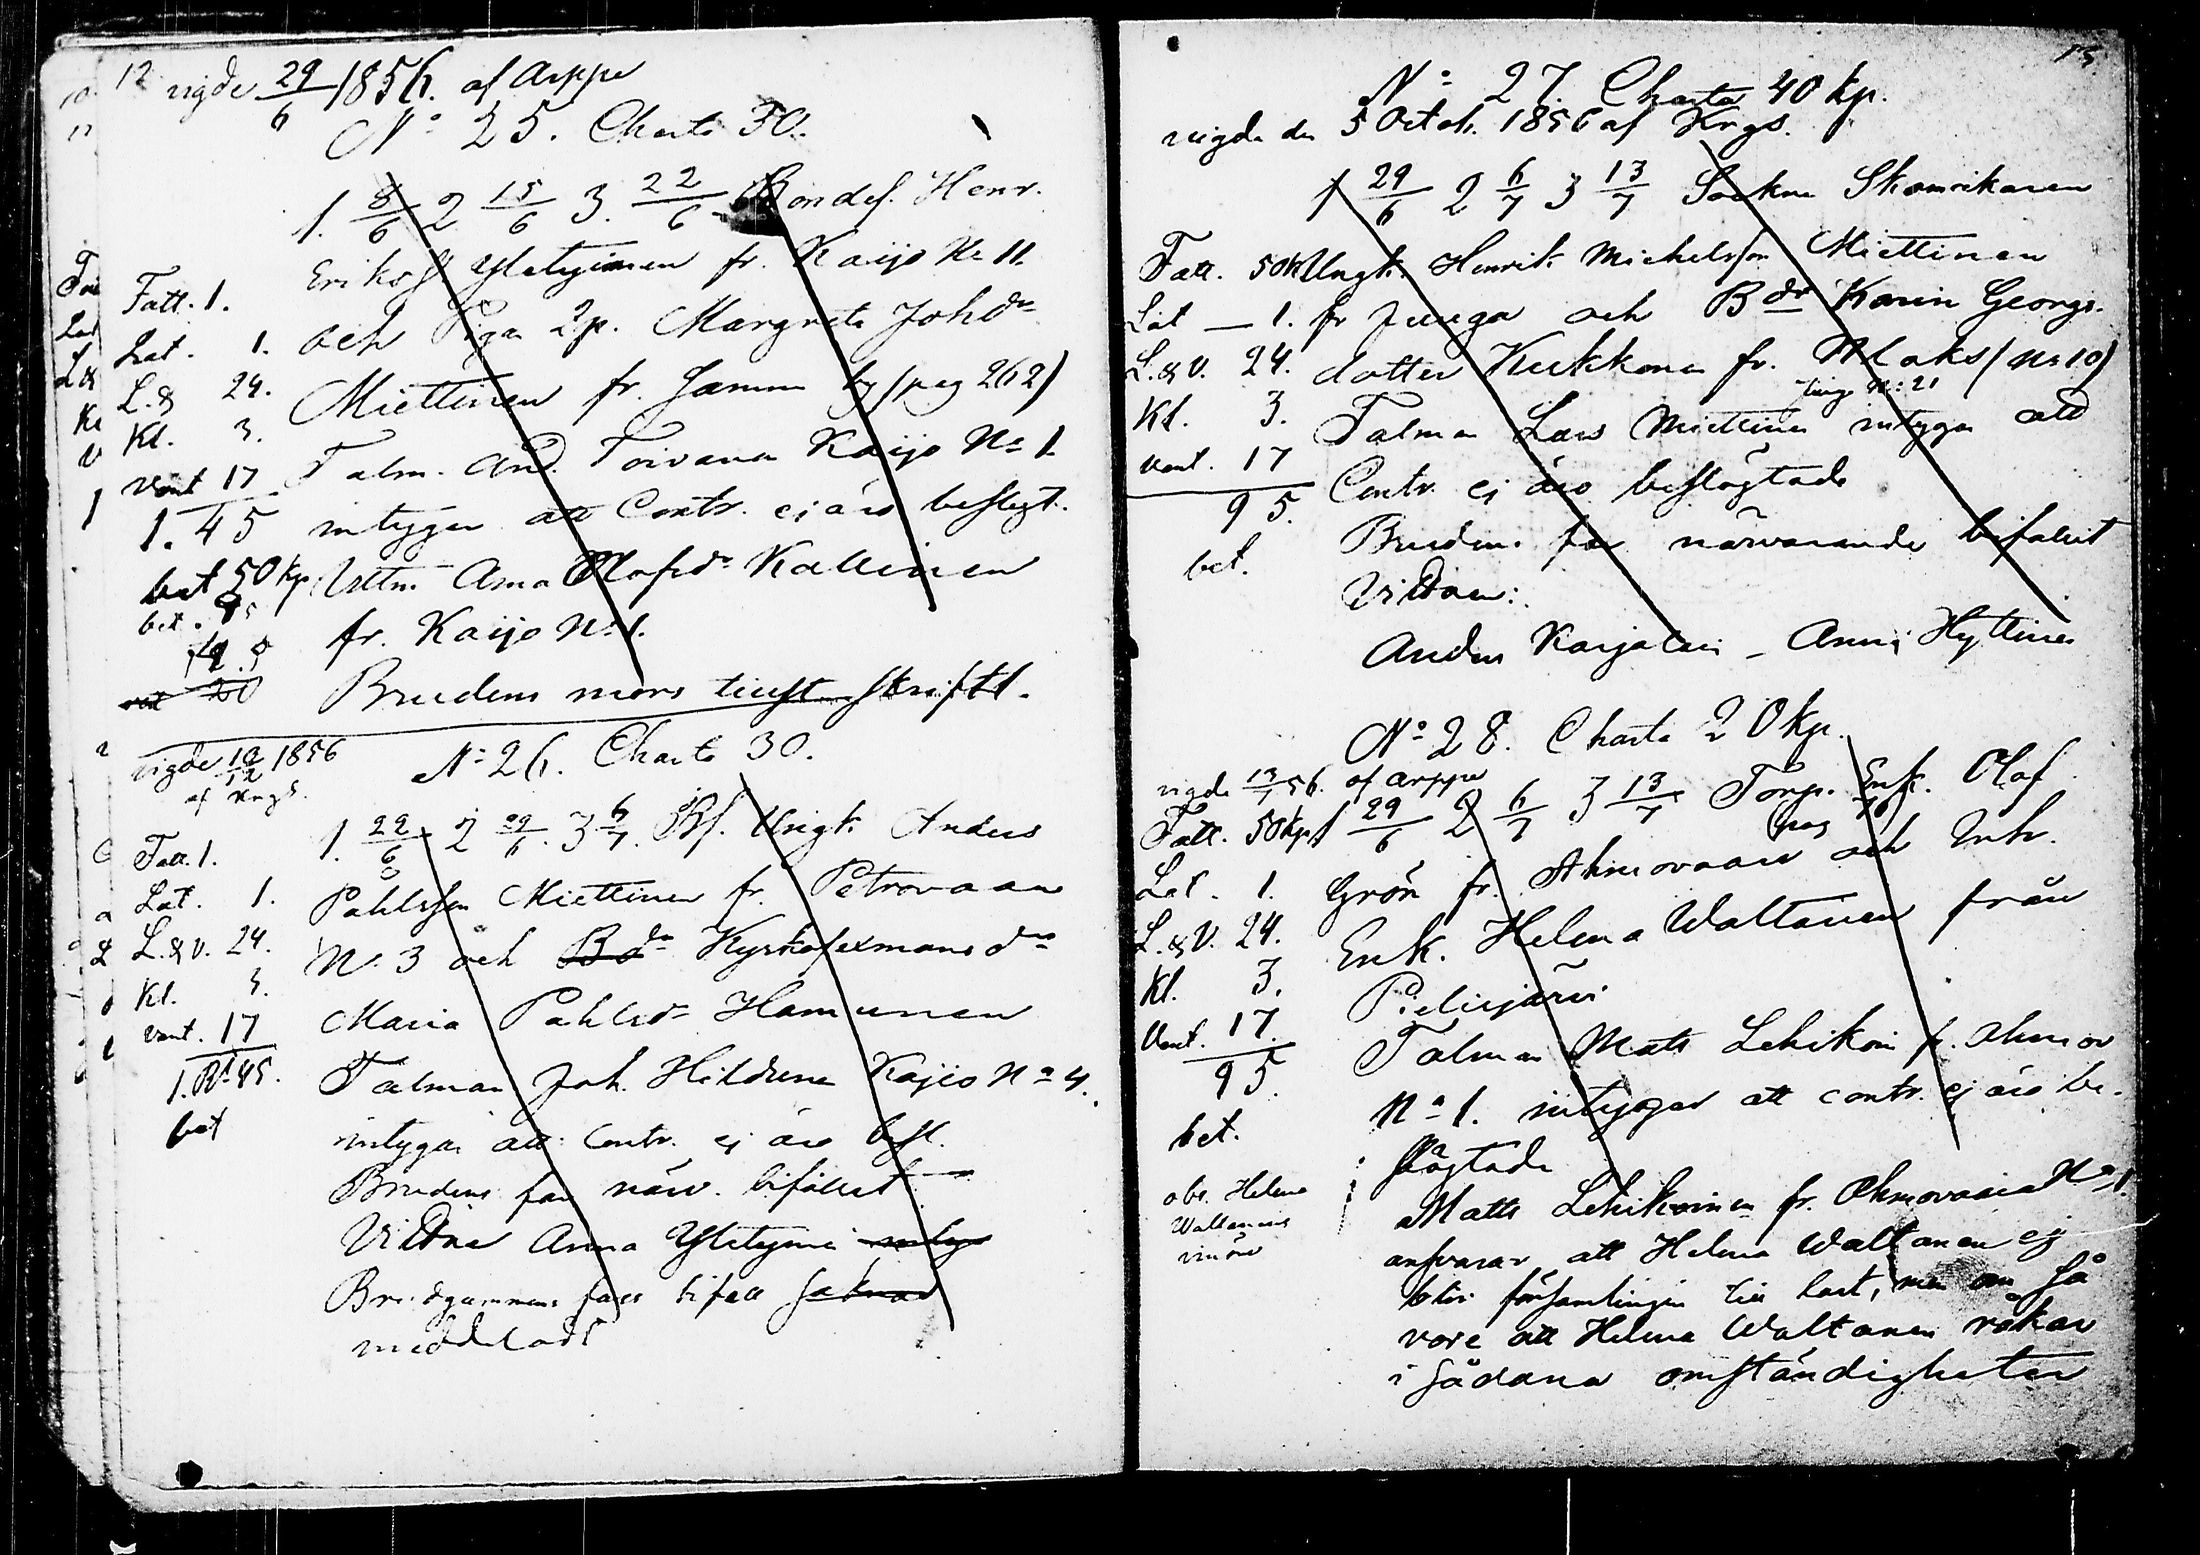 12 vigde 29/6 1856. af Arppe
N:o 25. Charta 30.
1. 8/6 2 15/6 3. 22/6 Bondes. Henr.
Erikss Yletyinen fr. Kaijo No 11.
och Piga 2p. Margreta Johdr
Miettinen fr. Jamm by (pag 262)
Talm. And. Toivanen Kaijo No 1.
intygar att Contr. ej äro beslegt.
Vittn. Anna Olofsdr Kallinen
fr. Kaijo No 1.
Brudens mors tillst. skriftl.
Fatt. 1.
Lat. 1.
L. & 24.
Kl. 3.
Vant 17
1. 45
bet 50 kp
bet. 95
vigde 10/12 1856
af Krgs.
N:o 26. Charta 30.
1. 22/6 2 29/6. 3 6/7. Bs. Ungk. Anders
Pahlsson Miettinen fr. Petrovaara
N. 3 och Bdr Kyrkosexmans dr
Maria Pahlsdr Hamunen
Talman Joh. Hildunen Kajio No 4.
intygar att Contr. ej äro besl.
Brudens far närv. bifallit
Vittne Anna Yletyinen intyg
Brudgummens fars bifall saknas
meddeladt
Fatt. 1.
Lat. 1.
L. & V. 24.
Kl. 3.
Vant. 17
1. R. 45.
bet
13
No 27. Charta 40 kp.
vigde den 5 Octob. 1856 af Krgs.
1 29/6 2 6/7 3 13/7 Sockne Skomikaren
Ungk. Henrik Michelsson Miettinen
fr Juuga och Bdr Karin Georgs-
dotter Kukkonen fr. (No 10)
Juuga No: 21
Talman Lars Miettinen intygar att
Contr. ej äro beslägtade
Brudens far närvarande bifallit
Vittnen:
Anders Karjalain – Anna Hyttinen
Fatt. 50 k
Lat — 1.
L. & V. 24.
Kl. 3.
Vant. 17
95.
bet.
No 28. Charta 20 kp.
vigde 13/7 56. af Arppe
1 29/6 2 6/7 3 13/7 Torp. Enk. Olof
pag
Grön fr. Ahmovaara och Inh.
Enk. Helena Waltanen från
Pielisjärvi
Talman Matts Lehikoin fr. Ahmov
No 1. intygar att contr. ej äro be-
slägtade
Matts Lehikoinen fr. Ahmovaara No 1.
ansvarar att Helena Waltanen ej
blir församlingen till last, men om så
vore att Helena Waltanen råkar
i sådana omständigheter
Fatt. 50 kp
Lat. 1.
L. & V. 24.
Kl. 3.
Vant. 17.
95.
bet.
obs. Helena
Waltanens